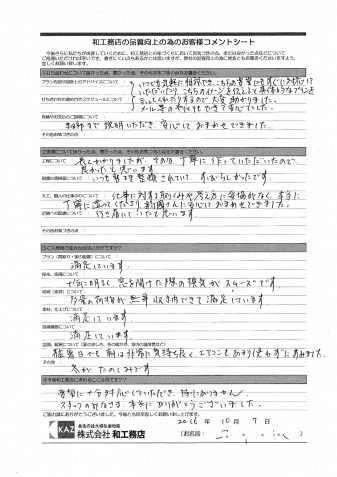 和工務店の品質向上の為のお客様コメントシート
①打ち合わせについて良かった点、悪かった点、そのお気づきの点をお書きください。
プラン内容や設備のアドバイスについて
いつも気軽に相談でき、こちらの要望にもすぐに対応して
いただいたり、こちらのイメージを伝えると具体的なプランを
打ち合わせの進め方やスケジュールについて
示してくれたりするので大変助かりました。
メール等のやりとりもできて安心でした。
見積やお支払のご説明について
詳細まで説明いただき、安心しておまかせできました。
その他お気づきの点
②現場について良かった点、悪かった点、そのお気づきの点をお書きください。
工程について
長くかかりましたが、その分、丁寧に作っていただいたので
良かったと思います。
いつも整理整頓されていて、すばらしかったです。
大工、職人の仕事ぶりについて
仕事に対する取りくみや考え方に妥協がなく、本当に
丁寧に造ってくださり、新園さんに安心しておまかせできました。
近隣への配慮について
行き届いていたと思います。
その他お気づきの点
③ご入居後の住み心地はいかがですか？
プラン（間取り・家の配置）について
満足しています。
採光、通風について
十分に明るく、窓を開けた際の換気がスムーズです。
収納（家具）について
多量の荷物が無事収納できて満足しています
素材、仕上げについて
満足しています。
設備機器について
満足しています。
猛暑日でも朝は非常に気持ち良く、エアコンをあまり使わずにすみました。
その他
冬がたのしみです
④今後和工務店に求めることは何ですか？
要望に十分対応していただき、特にありません。
スタッフのみなさま、本当にありがとうございました。
ご協力ありがとうございました。今後とも何卒宜しくお願い申し上げます。
KAZ
株式会社 和工務店
2016年 10月 7日
（お名前：